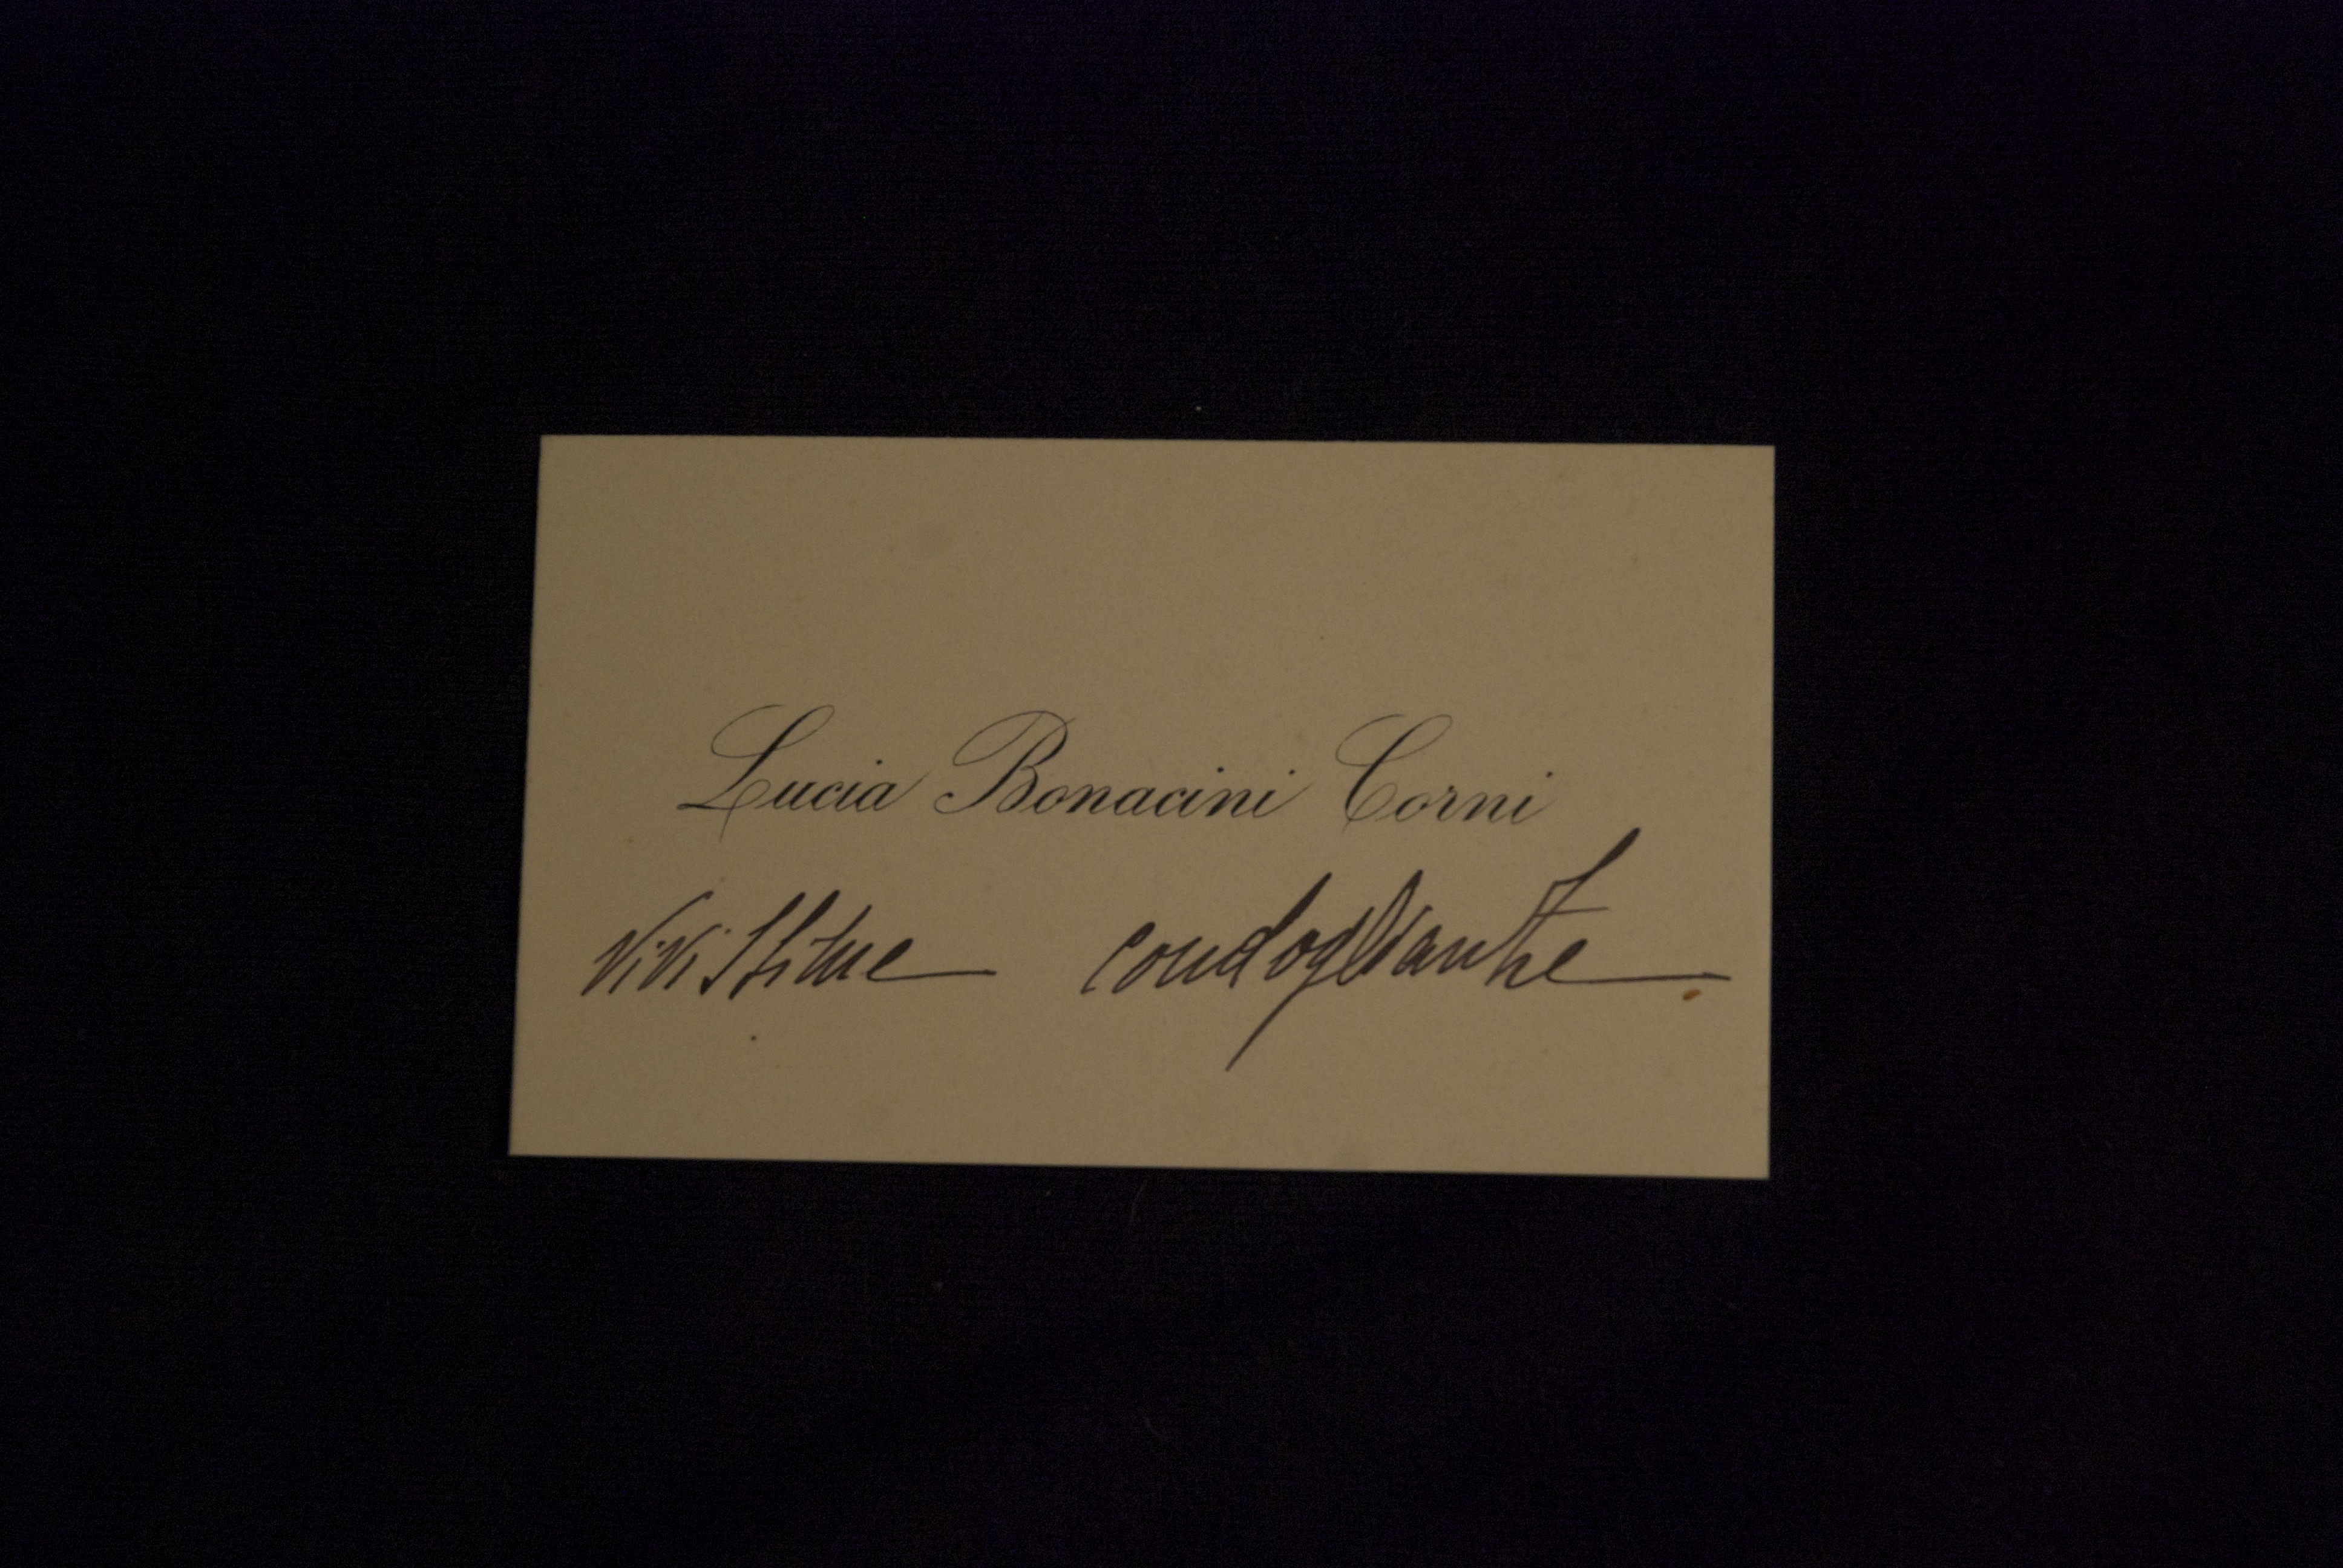 Lucia Bonacini Corni
vivissime condogliante